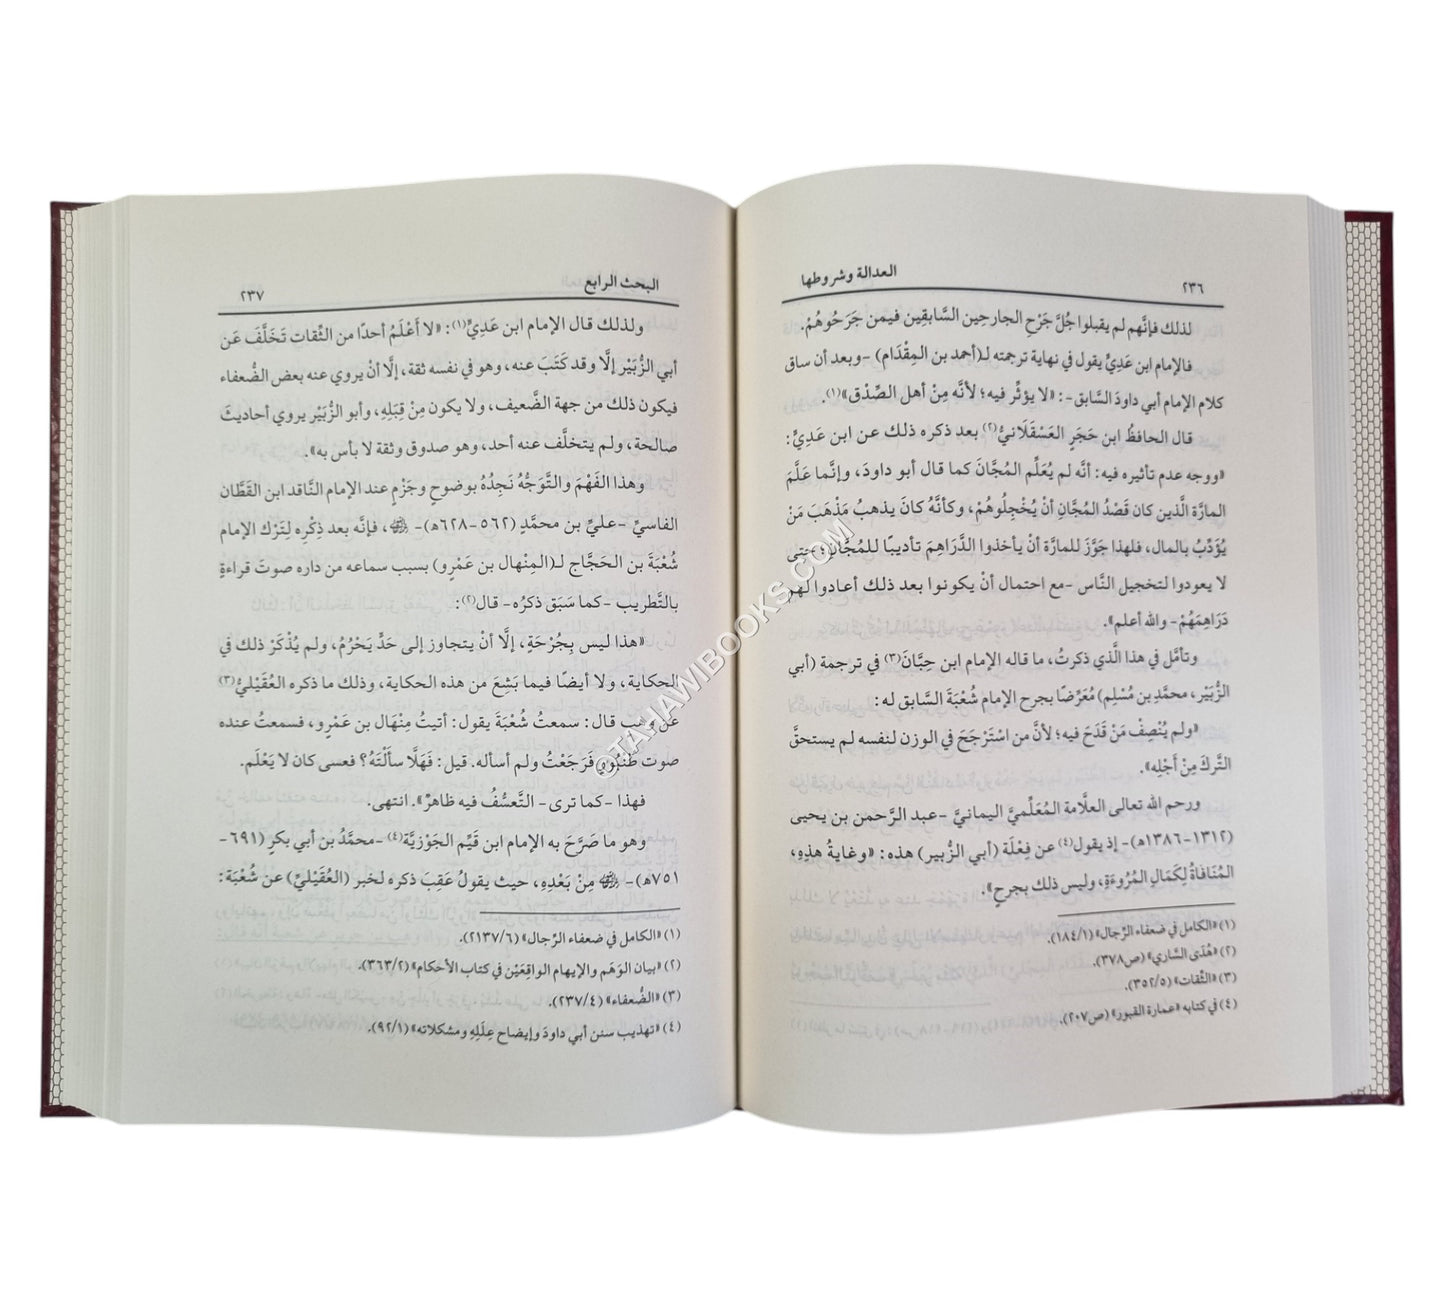 ٢٣٦ العدالة وشروطها
لذلك فإنَّهم لم يقبلوا جُلَّ جَرْحِ الجارحين السَّابقين فيمن جَرَحُوهُمْ.
فالإمام ابن عَدِيٍّ يقول في نهاية ترجمته لـ(أحمد بن المِقْدَام) -وبعد أن ساق
كلام الإمام أبي داودَ السَّابق-: «لا يؤثِّر فيه؛ لأنَّه مِنْ أهل الصِّدْق»(١).
قال الحافظُ ابن حَجَرٍ العَسْقَلَانيُّ(٢) بعد ذكره ذلك عن ابن عَدِيٍّ:
«ووجه عدم تأثيره فيه: أنَّه لم يُعَلِّم المُجَّانَ كما قال أبو داودَ، وإنَّما عَلَّمَ
المارَّة الَّذين كان قَصْدُ المُجَّانِ أنْ يُخْجِلُوهُمْ، وكأنَّهُ كانَ يذهبُ مَذْهَبَ مَنْ
يُؤَدِّبُ بالمال، فلهذا جَوَّزَ للمارَّة أنْ يأخذوا الدَّراهِمَ تأديبًا للمُجَّان؛ حتى
لا يعودوا لتخجيل النَّاس -مع احتمال أنْ يكونوا بعد ذلك أعادوا لهم
دَرَاهِمَهُمْ- والله أعلم».
وتأمَّل في هذا الَّذي ذكرتُ، ما قاله الإمام ابن حِبَّانَ(٣) في ترجمة (أبي
الزُّبَيْر، محمَّدِ بن مُسْلِم) مُعَرِّضًا بجرح الإمام شُعْبَةَ السَّابق له:
«ولم يُنْصِفْ مَنْ قَدَحَ فيه؛ لأنَّ من اسْتَرْجَحَ في الوزن لنفسه لم يستحقَّ
التَّركَ مِنْ أَجْلِه».
ورحم الله تعالى العلَّامة المُعَلِّميَّ اليمانيَّ -عبد الرَّحمن بن يحيى
(١٣١٢-١٣٨٦هـ)- إذ يقول(٤) عن فِعْلَة (أبي الزُّبير) هذه: «وغايةُ هذِهِ،
المُنَافاةُ لِكَمَالِ المُرُوءَةِ، وليس ذلك بجرحٍ».
(١) «الكامل في ضعفاء الرِّجال» (١٨٤/١).
(٢) «هُدَى السَّاري» (ص٣٧٨).
(٣) «الثِّقات» (٣٥٢/٥).
(٤) في كتابه «عمارة القبور» (ص٢٠٧).
البحث الرابع ٢٣٧
ولذلك قال الإمام ابن عَدِيٍّ(١): «لا أَعْلَمُ أحدًا من الثِّقات تَخَلَّفَ عَن
أبي الزُّبَيْر إلَّا وقد كَتَبَ عنه، وهو في نفسه ثقة، إلَّا أنْ يروي عنه بعض الضُّعفاء
فيكون ذلك من جهة الضَّعيف، ولا يكون مِنْ قِبَلِهِ، وأبو الزُّبَيْر يروي أحاديثَ
صالحة، ولم يتخلَّف عنه أحد، وهو صدوق وثقة لا بأس به».
وهذا الفَهْمَ والتَّوجُّهُ نَجِدُهُ بوضوحٍ وجَزْمٍ عند الإمام النَّاقد ابن القَطَّان
الفاسيِّ -عليِّ بن محمَّدٍ (٥٦٢-٦٢٨هـ)-، فإنَّه بعد ذِكْرِه لِتَرْك الإمام
شُعْبَةَ بن الحَجَّاج لـ(المِنْهال بن عَمْرٍو) بسبب سماعه من داره صوتَ قراءةٍ
بالتَّطريب -كما سَبَق ذكرُه- قال(٢):
«هذا ليس بِجُرْحَةٍ، إلَّا أنْ يتجاوز إلى حَدٍّ يَحْرُمُ، ولم يُذْكَرْ ذلك في
الحكاية، ولا أيضًا فيما بَشِعَ من هذه الحكاية، وذلك ما ذكره العُقَيْليُّ(٣)
عن وهب قال: سمعتُ شُعْبَةَ يقول: أتيتُ مِنْهال بن عَمْرٍو، فسمعتُ عنده
صوت طُنْبُورٍ فَرَجَعْتُ ولم أسأله. قيل: فَهَلَّا سألْتَهُ؟ فعسى كان لا يَعْلَم.
فهذا -كما ترى- التَّعسُّفُ فيه ظاهرٌ». انتهى.
وهو ما صَرَّحَ به الإمام ابن قَيِّم الجَوْزيَّة(٤) -محمَّدُ بن أبي بكرٍ (٦٩١-
٧٥١هـ)- مِنْ بَعْدِهِ، حيث يقولُ عَقِبَ ذكره لخبر (العُقَيْليِّ) عن شُعْبَة:
(١) «الكامل في ضعفاء الرِّجال» (٢١٣٧/٦).
(٢) «بيان الوَهَم والإيهام الواقِعَيْن في كتاب الأحكام» (٣٦٣/٢).
(٣) «الضُّعفاء» (٢٣٧/٤).
(٤) «تهذيب سنن أبي داودَ وإيضاح عِلَلِهِ ومشكلاته» (٩٢/١).
©TAHAWIBOOKS.COM